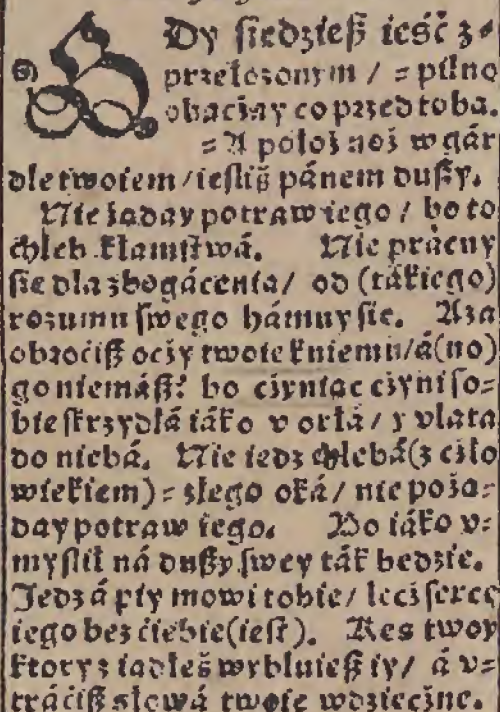 GDy siedzieß ieść z⸗
przełożonym / ⸗ pilno
obaczay co przed toba.
⸗ A położ noż w gár
dle twoiem / iesliß pánem dußy.
Nie żaday potraw iego / bo to
chleb kłamstwá. Nie prácuy
sie dla zbogácenia / od (tákiego)
rozumu swego hámuy sie. Aza
obrociß oczy twoie k niemu / á (no)
go niemáß? bo czyniac czyni so⸗
bie skrzydłá iáko v orłá / y vlata
do niebá. Nie iedz chlebá (z czło
wiekiem) ⸗ złego oká / nie poża⸗
day potraw iego. Bo iáko v⸗
myslił ná dußy swey ták bedzie.
Jedz á piy mowi tobie / lecz serce
iego bez ciebie (iest). Kes twoy
ktory z iadłeś wybluieß iy / á v⸗
tráciß słowá twoie wdzieczne.